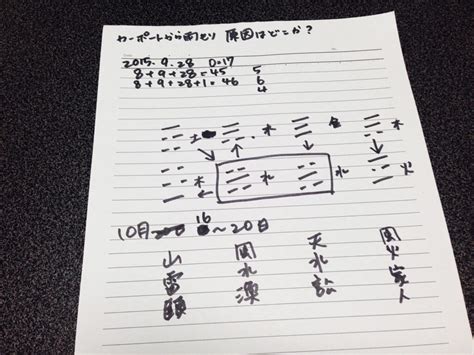 カーポートから雨もり 原因はどこか?
2015. 9. 28 0:17
8+9+28=45 5
8+9+28+1=46 6
4
土 水 金 木
木 水 水 火
10月 16~20日
山 風 天 風
雷 水 水 火
頤 渙 訟 家
人